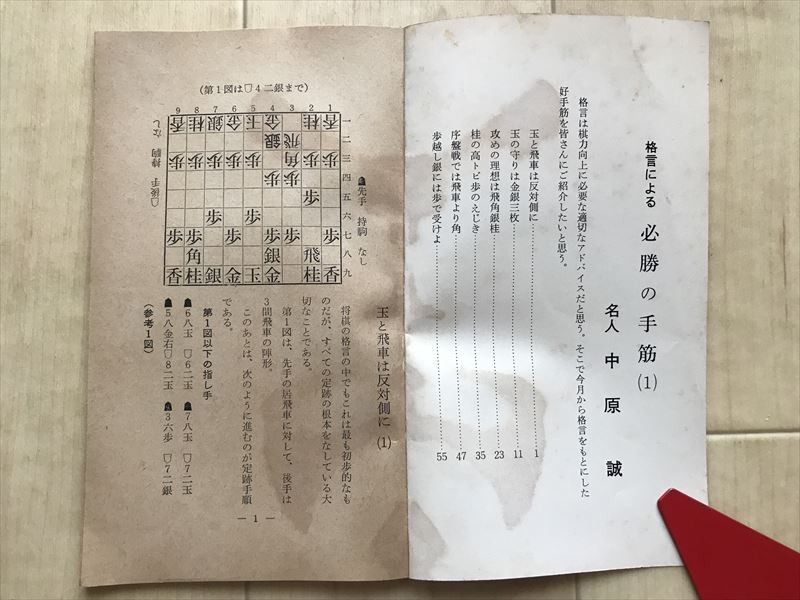 格言による 必勝の手筋(1)
名人 中原 誠
格言は棋力向上に必要な適切なアドバイスだと思う。そこで今月から格言をもとにした
好手筋を皆さんにご紹介したいと思う。
玉と飛車は反対側に……………… 1
玉の守りは金銀三枚……………… 11
攻めの理想は飛角銀桂……………… 23
桂の高トビ歩のえじき……………… 35
序盤戦では飛車より角……………… 47
歩越し銀には歩で受けよ……………… 55
(第1図は☖4二銀まで)
☗先手 持駒 なし
9 8 7 6 5 4 3 2 1
香 桂 銀 金 玉 金 桂 香 一
銀 飛 二
歩 歩 歩 歩 歩 角 歩 歩 三
歩 歩 四
歩 五
歩 歩 六
歩 歩 歩 歩 歩 歩 七
角 銀 飛 八
香 桂 銀 金 玉 金 桂 香 九
☖後手 持駒 なし
玉と飛車は反対側に(1)
将棋の格言の中でもこれは最も初歩的なも
のだが、すべての定跡の根本をなしている大
切なことである。
第1図は、先手の居飛車に対して、後手は
3間飛車の陣形。
このあとは、次のように進むのが定跡手順
である。
第1図以下の指し手
☗6八玉 ☖6二玉 ☗7八玉 ☖7二玉
☗5八金右☖8二玉 ☗3六歩 ☖7二銀
(参考1図)
— 1 —